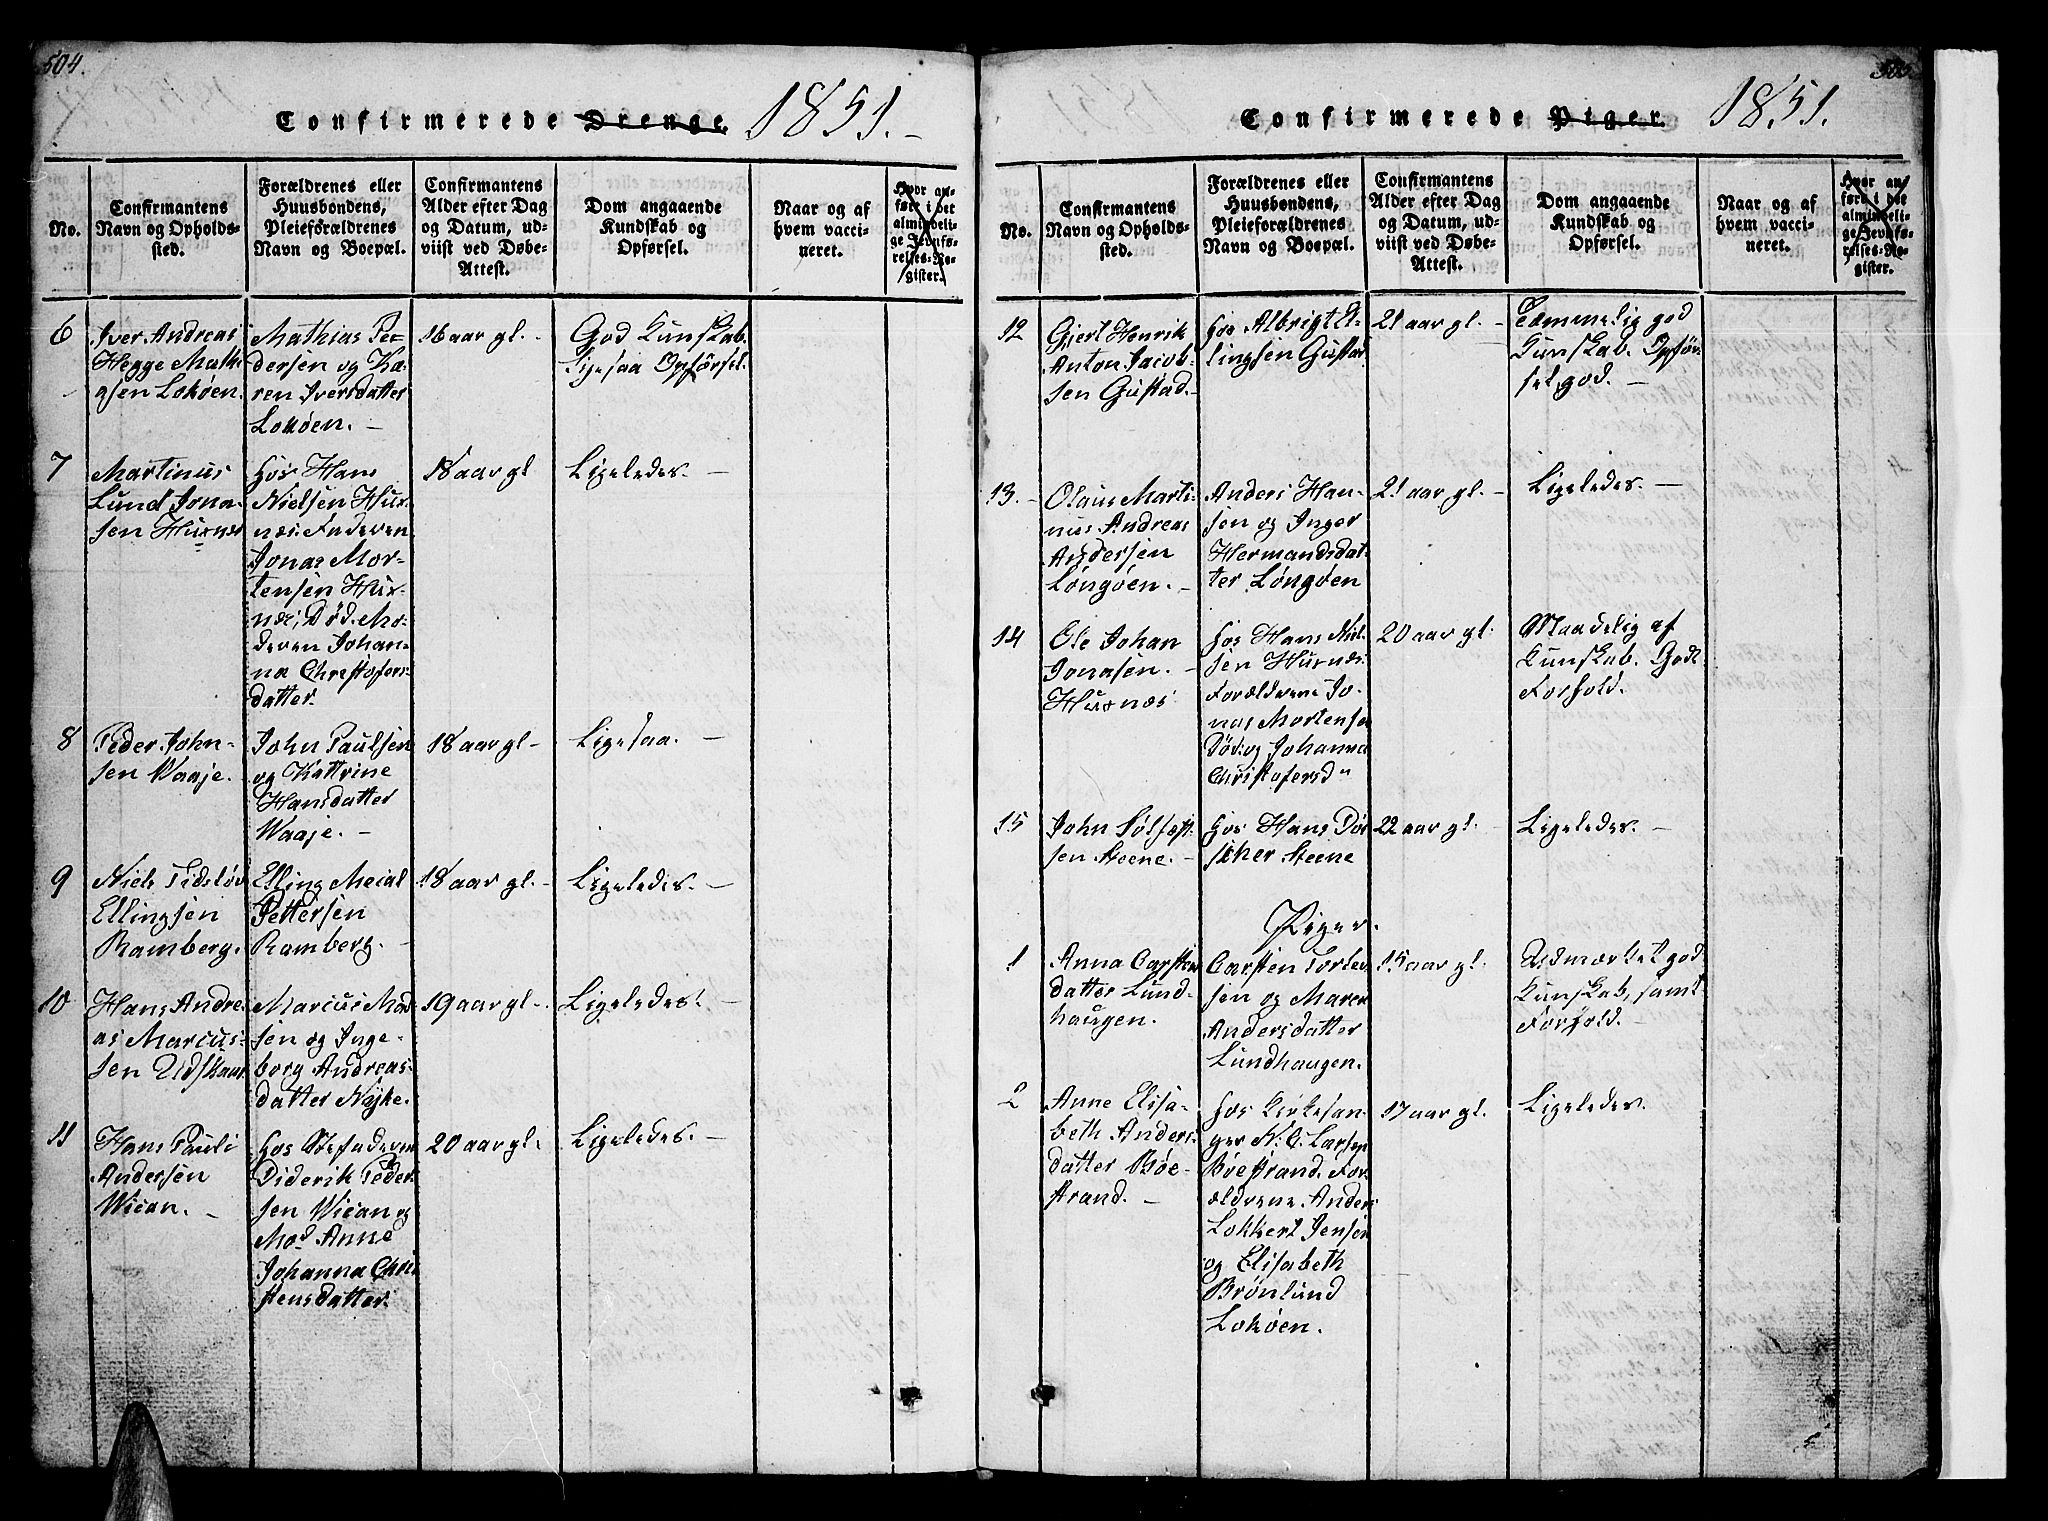 504.
Confirmerede Drenge. 1851. -
No.
Confirmantens
Navn og Opholds-
sted.
Forældrenes eller
Huusbondens,
Pleieforældrenes
Navn og Boepæl.
Confirmantens
Alder efter Dag
og Datum, ud-
viist ved Døbe-
Attest.
Dom angaaende
Kundskab og
Opførsel.
Naar og af
hvem vacci-
neret.
Hvor an-
ført i det
almindeli-
ge Jevnfø-
relses-Re-
gister.
6
Iver Andreas
Hegge Mathi
asen Lokøen.
Mathias Pe-
dersen og Ka-
ren Iversdatter
Lokøen. -
16 aar gl. -
God Kunskab.
Ligesaa Opførsel.
7
Martinus
Lund Jona-
sen Husnes
hos Hans
Nielsen Hus-
næs. Faderen
Jonas Mor-
tensen Hus-
næs, Død. Mo-
deren Johan-
na Christofers-
datter.
18 aar gl
Ligeledes. -
8
Peder John-
sen Waaje. -
John Paulsen
og Kattrine
Hansdatter
Waaje. -
18 aar gl -
Ligesaa. -
9
Niels Tidsløv
Ellingsen
Ramberg.
Elling
Pettersen
Ramberg. -
18 aar gl. -
Ligeledes. -
10
Hans Andre-
as Marcus-
sen Udskaar
Marcus Mad
sen og Inge-
borg Andreas-
datter Nyke.
19 aar gl -
Ligeledes. -
11
Hans Pauli
Andersen
Wican. -
hos Stefaderen
Diderik Peder
sen Wican og
Mod Anne
Johanna Chri
stensdatter.
20 aar gl.
Ligeledes. -
505.
Confirmerede Piger. 1851.
No.
Confirmantens
Navn og Opholds-
sted.
Forældrenes eller
Huusbondens,
Pleieforældrenes
Navn og Boepæl.
Confirmantens
Alder efter Dag
og Datum, ud-
viist ved Døbe-
Attest.
Dom angaaende
Kundskab og
Opførsel.
Naar og af
hvem vacci-
neret.
Hvor an-
ført i det
almindeli-
ge Jevnfø-
relses-Re-
gister.
12
Gjert Henrik
Anton Jacob-
sen Gustad. -
hos Albrigt El-
lingsen Gustad
21 aar gl. -
Temmelig god
Kunskab. Opfør
sel god. -
13. -
Olaus Marti-
nus Andreas
Andersen
Longøen. -
Anders Han-
sen og Inger
Hermandsdat-
ter Longøen
21 aar gl. -
Ligeledes. -
14
Ole Johan
Jonasen. -
Husnæs
hos Hans Niel-
sen Husnæs.
Forælderene Jo-
nas Mortensen
Død. og Johanna
Christofersd"
20 aar gl.
Maadelig af
Kunskab. Godt
Forhold.
15
John
sen Steene. -
hos Hans
Steene
22 aar gl.
Ligeledes. -
Piger.
1
Anna Carsten
datter Lund-
haugen.
Carsten
sen og Maren
Andersdatter
Lundhaugen.
15 aar gl.
Udmærket god
Kunskab, samt
Forhold. -
2
Anne Elisa-
beth Anders-
datter Bøe-
strand. -
hos Kirkesan-
ger N. C. Larsen
Bøestrand. For-
ældrene Anders
Lokkert Jensen
og Elisabeth
Brønlund
Lokøen.
17 aar gl.
Ligeledes.